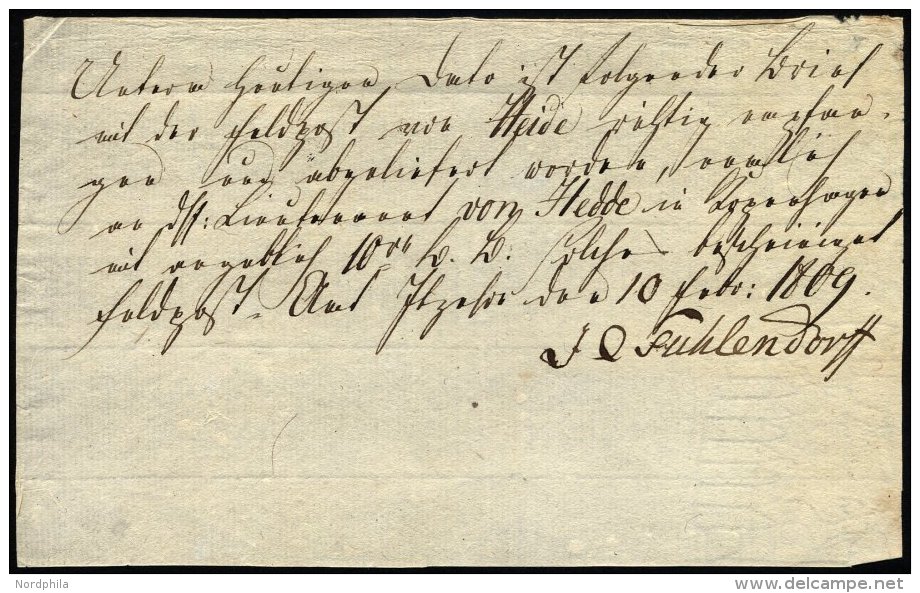 Unterm heutigen Dato ist folgender Brief
mit der Feldpost von Heide richtig empfan-
gen und abgeliefert worden, nemlich
an Lieutenant von Hedde in Kopenhagen
mit angeblich 10 solches bescheiniget
Feldpost-Amt Itzehoe den 10 Febr: 1809.
J Fuhlendorff
Nordphila
delcampe.net